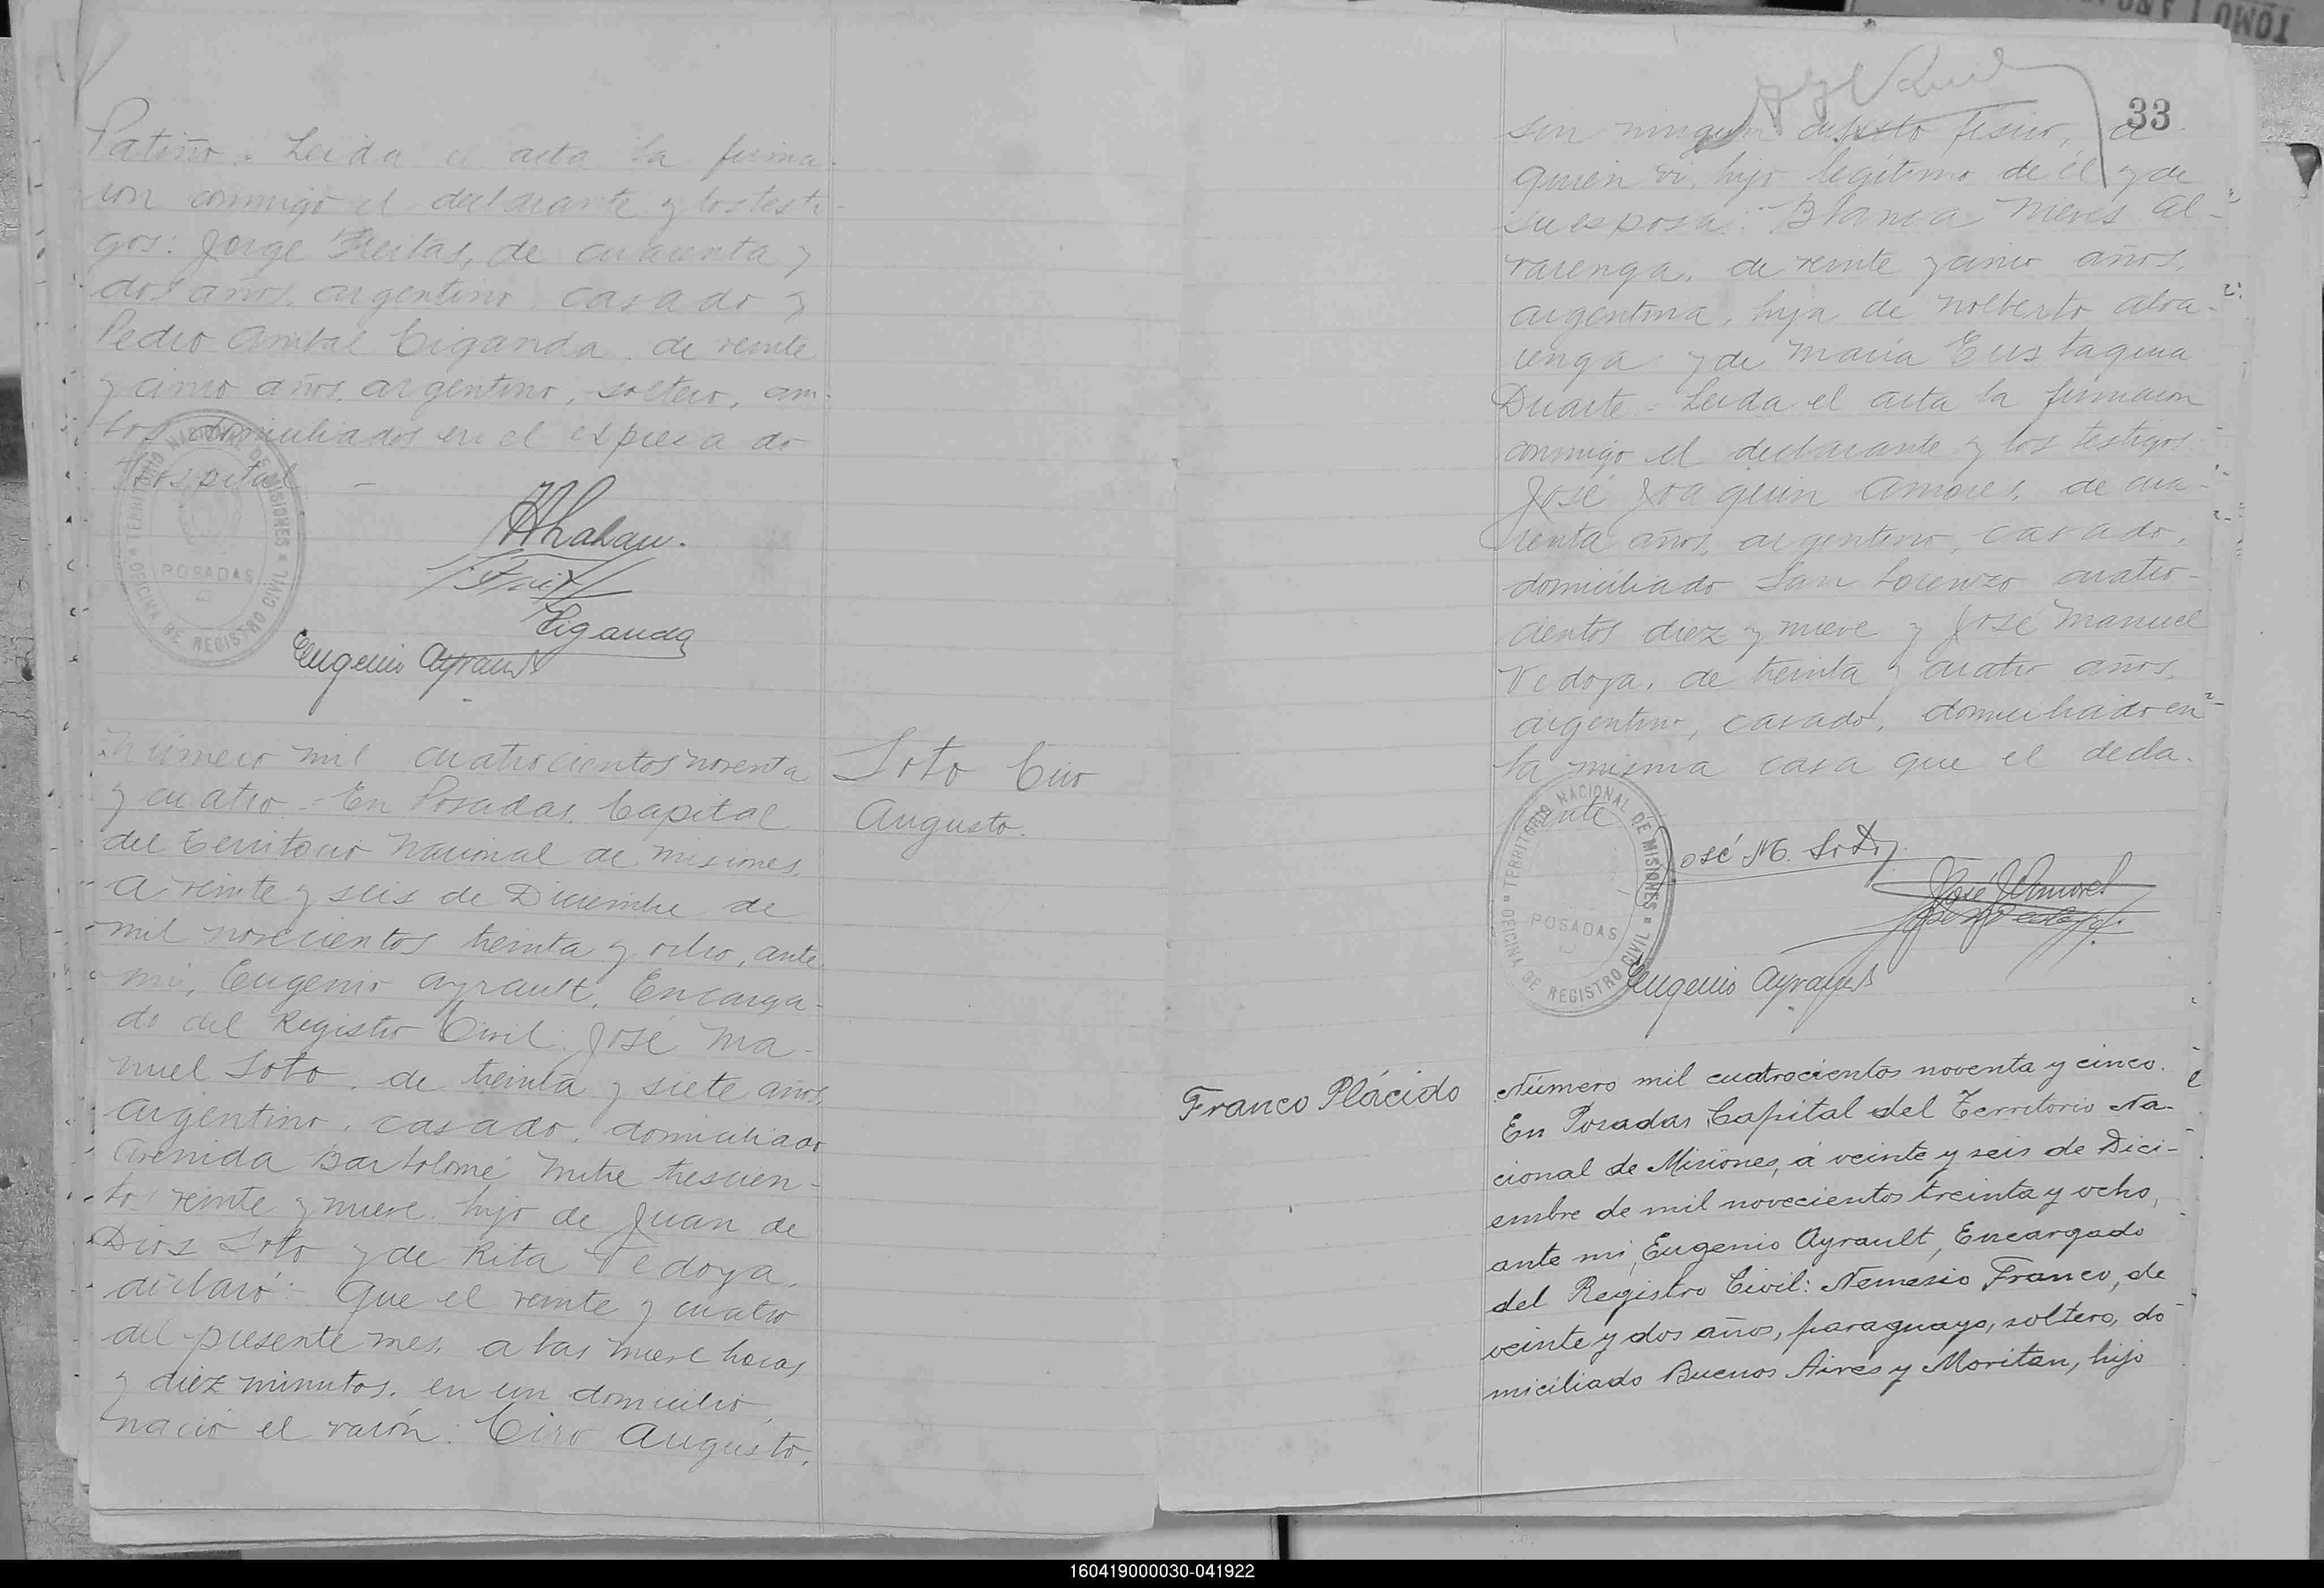 Patiño. Leida el acta la firma-
ron conmigo el declarante y los testi-
gos: Jorge Freitas, de cuarenta y
dos años, argentino, casado y
Pedro Anibal Ciganda, de veinte
y cinco años, argentino, soltero, am-
bos domiciliados en el expresado
Hospital.
Ciganda
Eugenio Ayrault
TERRITORIO NACIONAL DE MISIONES
POSADAS
OFICINA DE REGISTRO CIVIL
Número mil cuatrocientos noventa
y cuatro. En Posadas, Capital
del Territorio Nacional de Misiones,
a veinte y seis de Diciembre de
mil novecientos treinta y ocho, ante
mi, Eugenio Ayrault, Encarga-
do del Registro Civil: José Ma-
nuel Soto, de treinta y siete años,
argentino, casado, domiciliado
Avenida Bartolomé Mitre trescien-
tos veinte y nueve, hijo de Juan de
Dios Soto y de Rita Vedoya,
declaró: Que el veinte y cuatro
del presente mes, a las nueve horas
y diez minutos, en un domicilio,
nació el varón: Ciro Augusto,
Soto Ciro
Augusto.
33
sin ningun defecto fisico, a
quien vi, hijo legítimo de él y de
su esposa: Blanca Nieves Al-
varenga, de veinte y cinco años,
argentina, hija de Nolberto Alva-
renga y de Maria Eustaquia
Duarte. Leida el acta la firmaron
conmigo el declarante y los testigos
José Joaquin Amores, de cua-
renta años, argentino, casado,
domiciliado San Lorenzo cuatro-
cientos diez y nueve y José Manuel
Vedoya, de treinta y cuatro años,
argentino, casado, domiciliado en
la misma casa que el decla-
rante
José M. Soto
José J Amores
Eugenio Ayrault
TERRITORIO NACIONAL DE MISIONES
POSADAS
OFICINA DE REGISTRO CIVIL
Franco Plácido
Número mil cuatrocientos noventa y cinco.
En Posadas, Capital del Territorio Na-
cional de Misiones, á veinte y seis de Dici-
embre de mil novecientos treinta y ocho,
ante mi, Eugenio Ayrault, Encargado
del Registro Civil: Nemesio Franco, de
veinte y dos años, paraguayo, soltero, do
miciliado Buenos Aires y Moritan, hijo
160419000030-041922